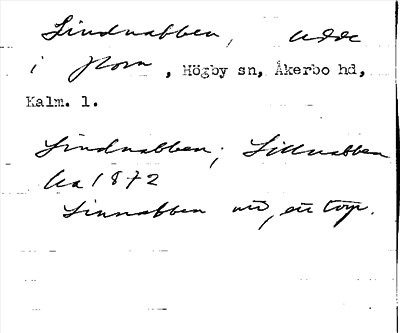 Lindnabben, udde
i Horn, Högby sn, Åkerbo hd,
Kalm. l.
Lindnabben, Lillnabben
Ua 1872
Linnabben vid, ett torp.